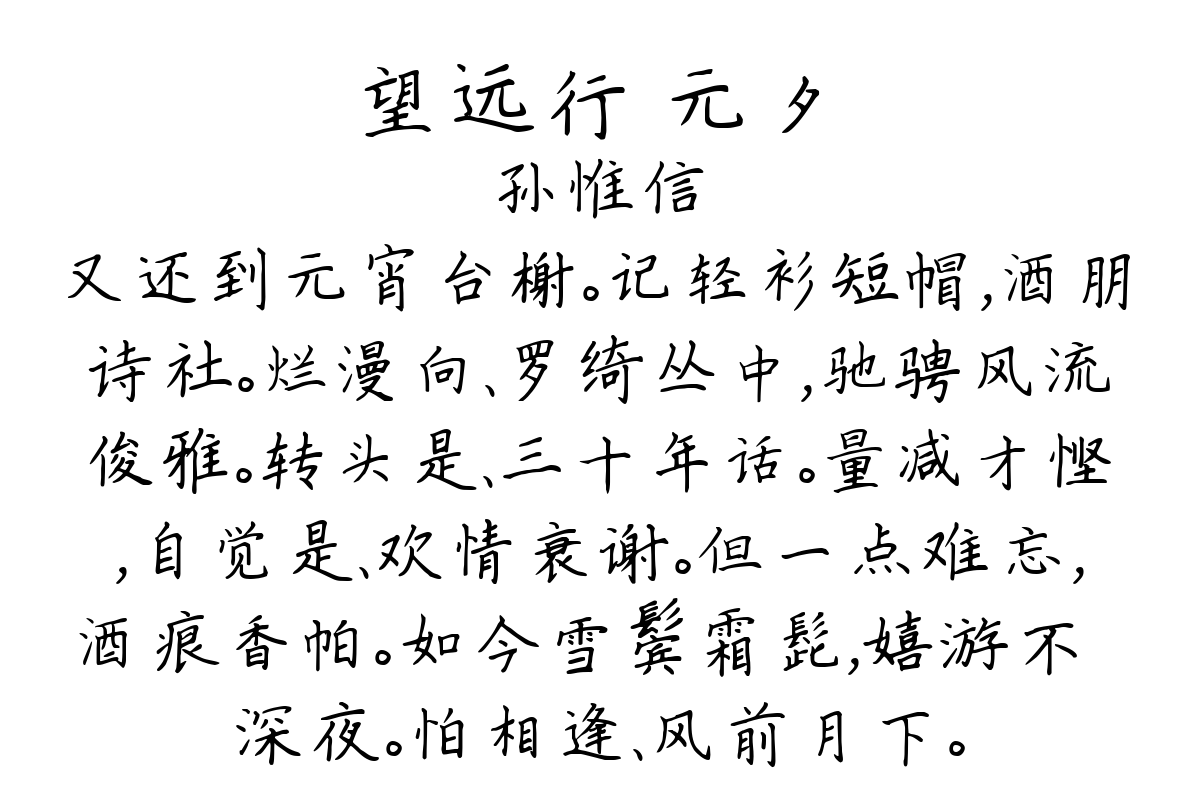 望远行 元夕
孙惟信
又还到元宵台榭。记轻衫短帽,酒朋
诗社。烂漫向、罗绮丛中,驰骋风流
俊雅。转头是、三十年话。量减才悭
,自觉是、欢情衰谢。但一点难忘,
酒痕香帕。如今雪鬓霜髭,嬉游不
深夜。怕相逢、风前月下。